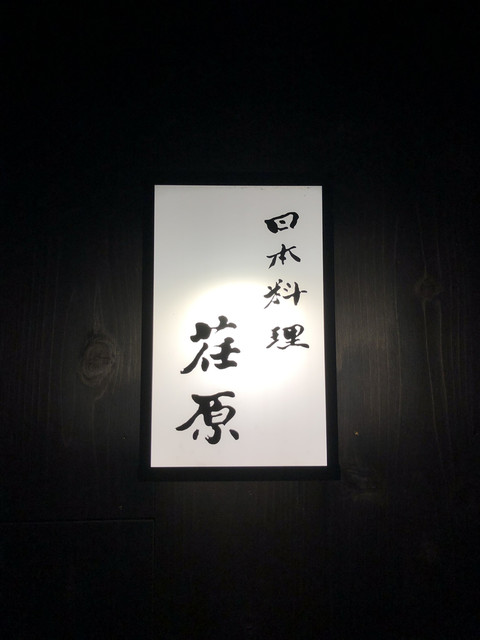 日本料理
荏原